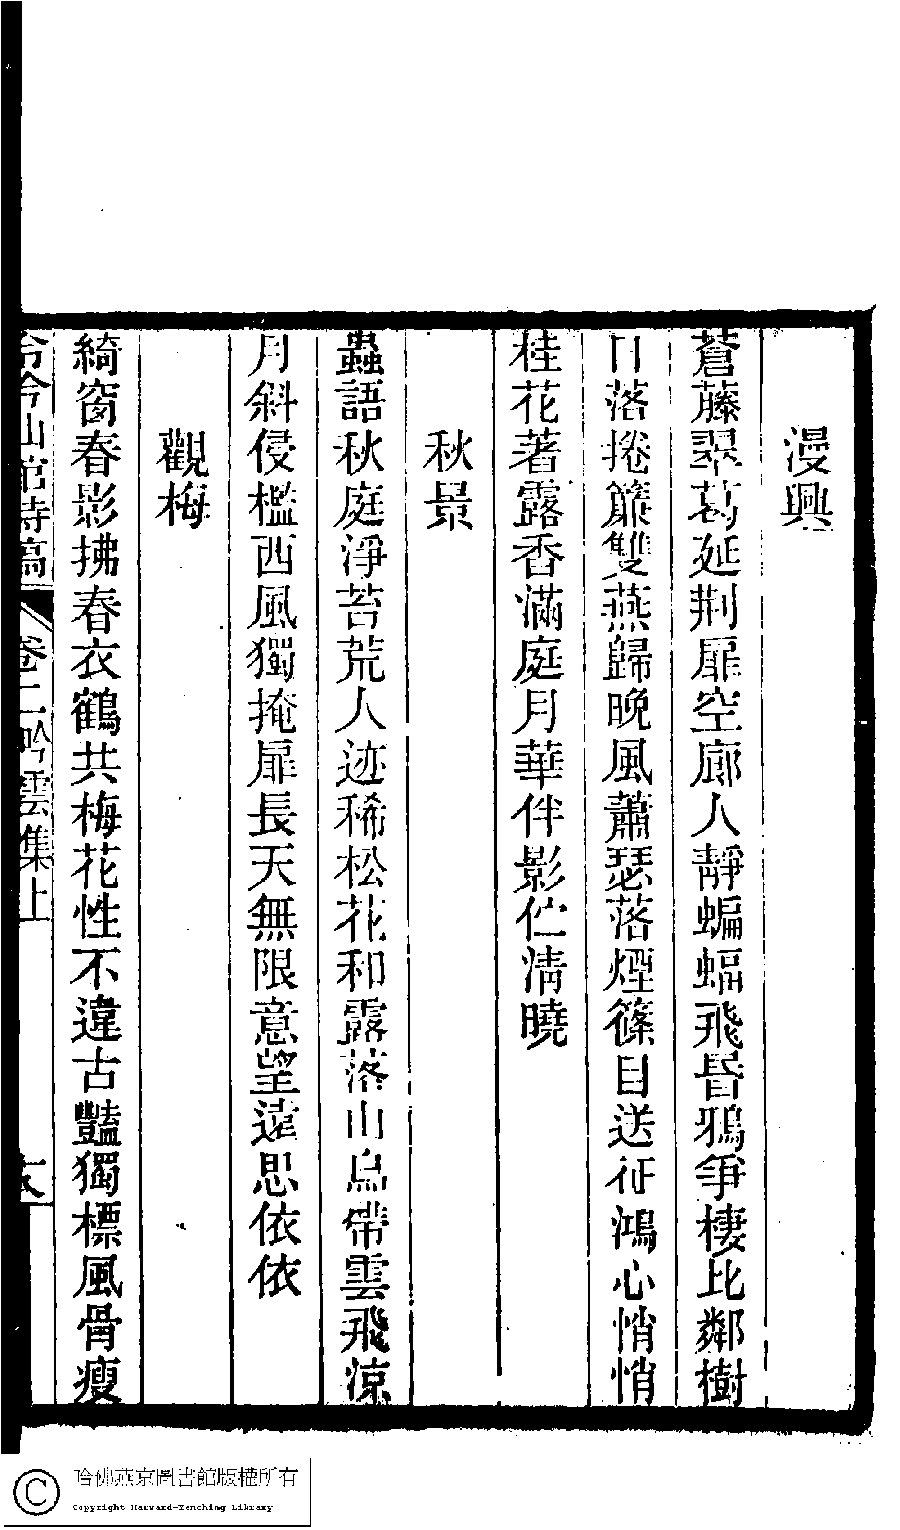 漫興
蒼藤翠葛延荆扉空廊人靜蝙蝠飛昏鴉爭棲比鄰樹
日落捲簾雙燕歸晚風蕭瑟落煙篠目送征鴻心悄悄
桂花著露香滿庭月華伴影伫清曉
秋景
蟲語秋庭淨苔荒人迹稀松花和露落山鳥帶雲飛涼
月斜侵檻西風獨掩扉長天無限意望遠思依依
觀梅
綺窗春影拂春衣鶴共梅花性不違古豔獨標風骨瘦
冷冷山館詩稿 卷二吟雲集上
哈佛燕京圖書館版權所有
Copyright Harvard-Yenching Library